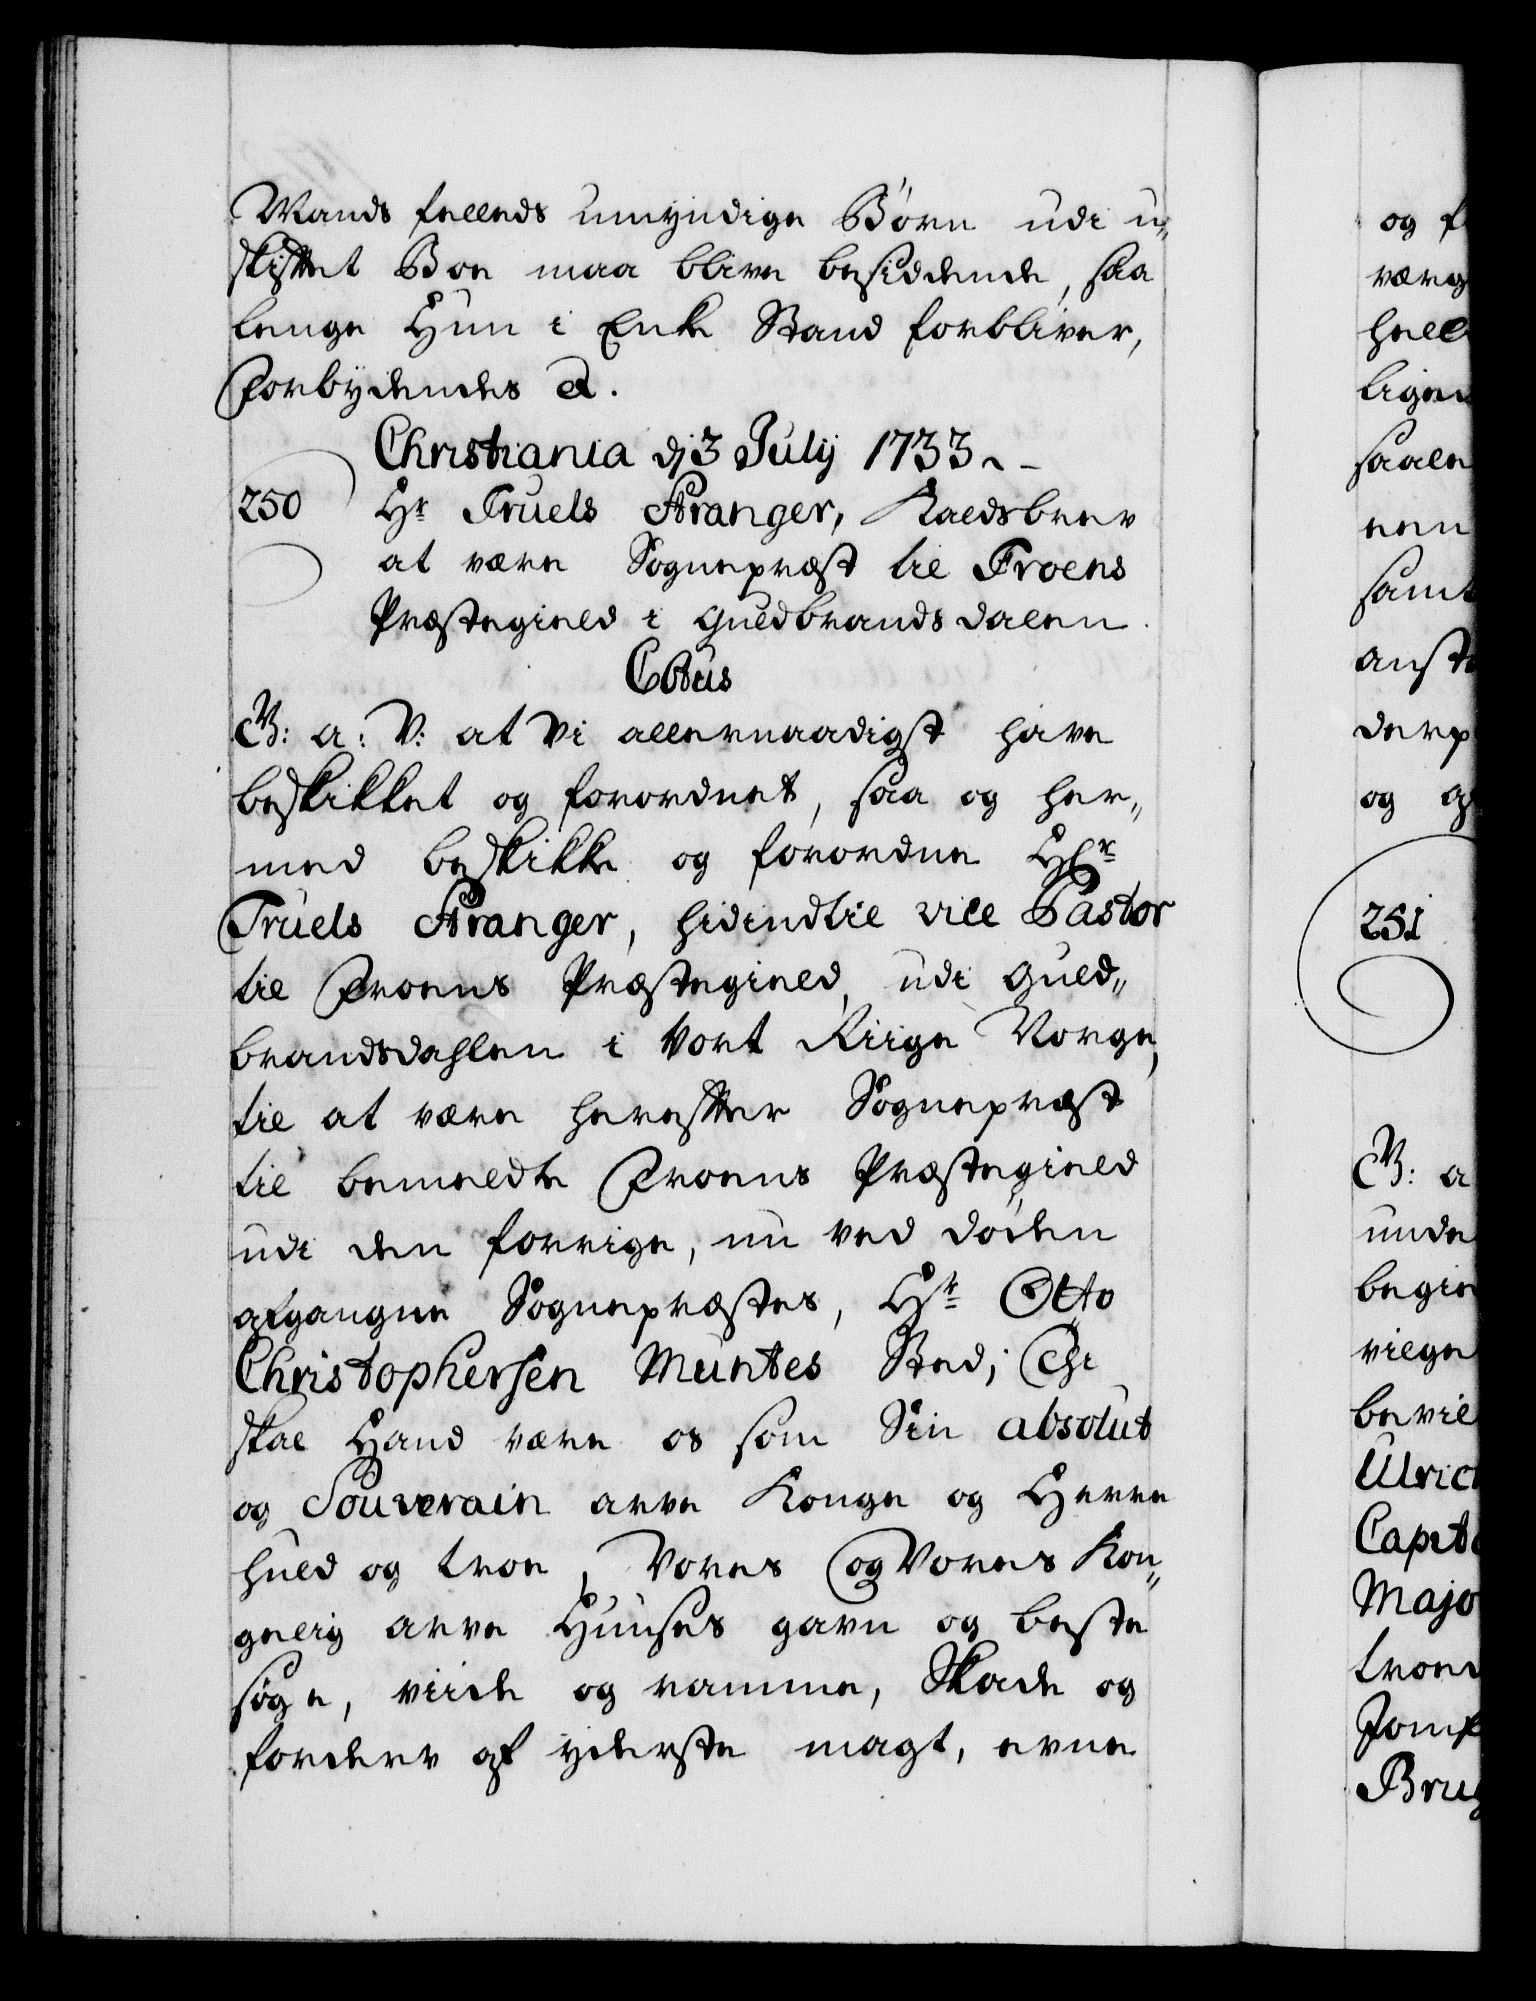 Mands felleds umyndige Børn udi u-
skiftet Boe maa blive besiddende, saa
lenge Hun i Enke Stand forbliver,
Forbydendes &.
Christiania dj 3 Julij 1733.
250 Hr Truels Aranger, Kaldsbrev
at være Sognepræst til Froens
Præstegield i Guldbrandsdalen.
C6tus
G: a: V: at Vi allernaadigst have
beskikket og forordnet, saa og her-
med beskikke og forordne Hr
Truels Aranger, hidindtil vice Pastor
til Froens Præstegield, udi Guld-
brandsdahlen i Vort Riige Norge,
til at være herefter Sognepræst
til bemeldte Froens Præstegield
udi den forrige, nu ved døden
afgangne Sognepræstes, Hr Otto
Christophersen Muntes Sted; Thi
skal Hand være os som Sin absolut
og Souverain arve Konge og Herre
huld og troe, Vores og Vores Kon-
gelig arve Huuses gavn og beste
søge, viide og ramme, Skade og
forderv af yderste magt, evne
og f
værg
hell
lige
saale
samt
anst
derp
og
251
G: a
unde
begie
vilge
bevil
Ulric
Capit
Majo
troe
Jomf
Brug